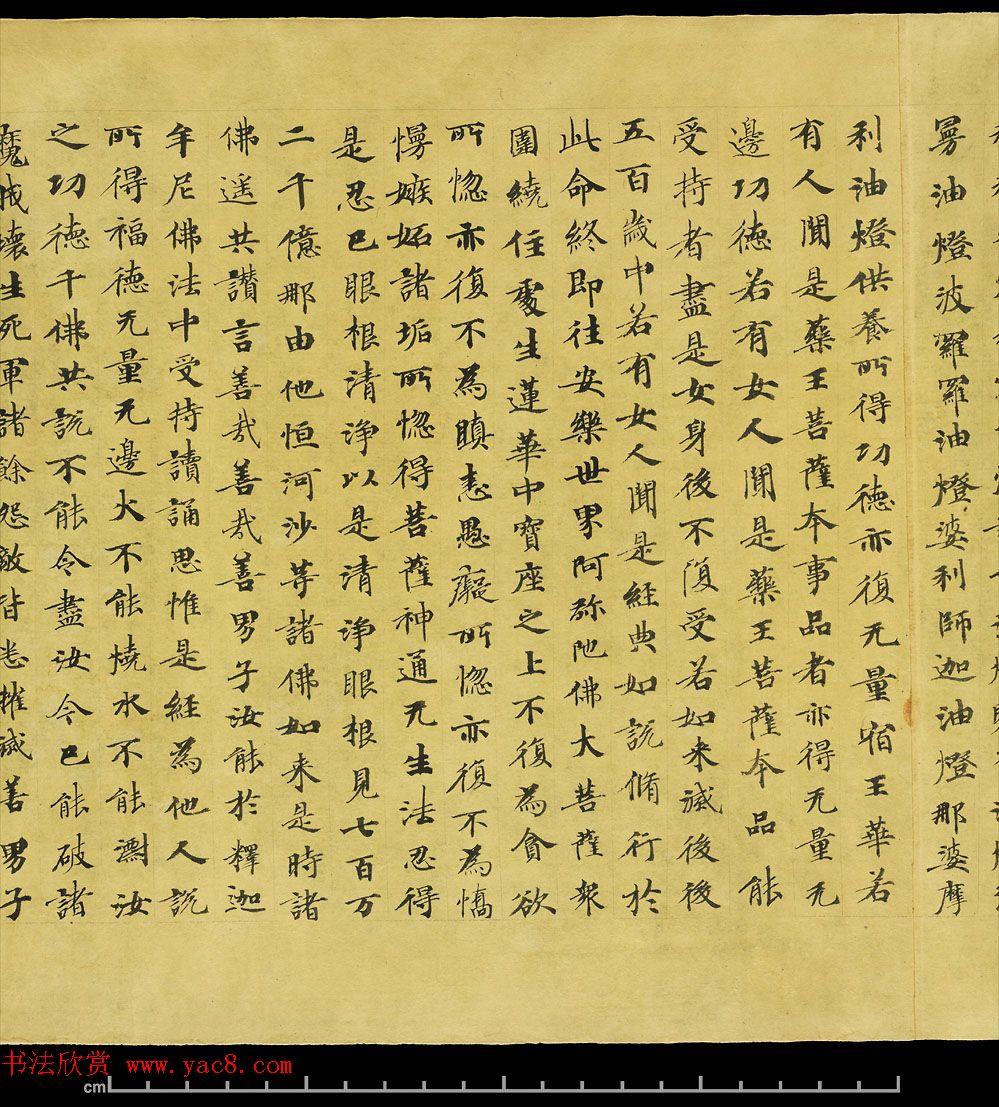 曼油燈波羅羅油燈婆利師迦油燈那婆摩
利油燈供養所得功德亦復无量宿王華若
有人聞是藥王菩薩本事品者亦得无量无
邊功德若有女人聞是藥王菩薩本品能
受持者盡是女身後不復受若如来滅後後
五百歲中若有女人聞是經典如說脩行於
此命終即往安樂世界阿弥陁佛大菩薩衆
圍繞住處生蓮華中寶座之上不復為貪欲
所惚亦復不為瞋恚愚癡所惚亦復不為憍
慢嫉妬諸垢所惚得菩薩神通无生法忍得
是忍已眼根清淨以是清淨眼根見七百万
二千億那由他恒河沙等諸佛如来是時諸
佛遥共讃言善哉善哉善男子汝能於釋迦
牟尼佛法中受持讀誦思惟是經為他人說
所得福德无量无邊火不能燒水不能漂汝
之功德千佛共說不能令盡汝今已能破諸
魔賊壞生死軍諸餘怨敵皆悉摧滅善男子
书法欣赏 www.yac8.com
cm